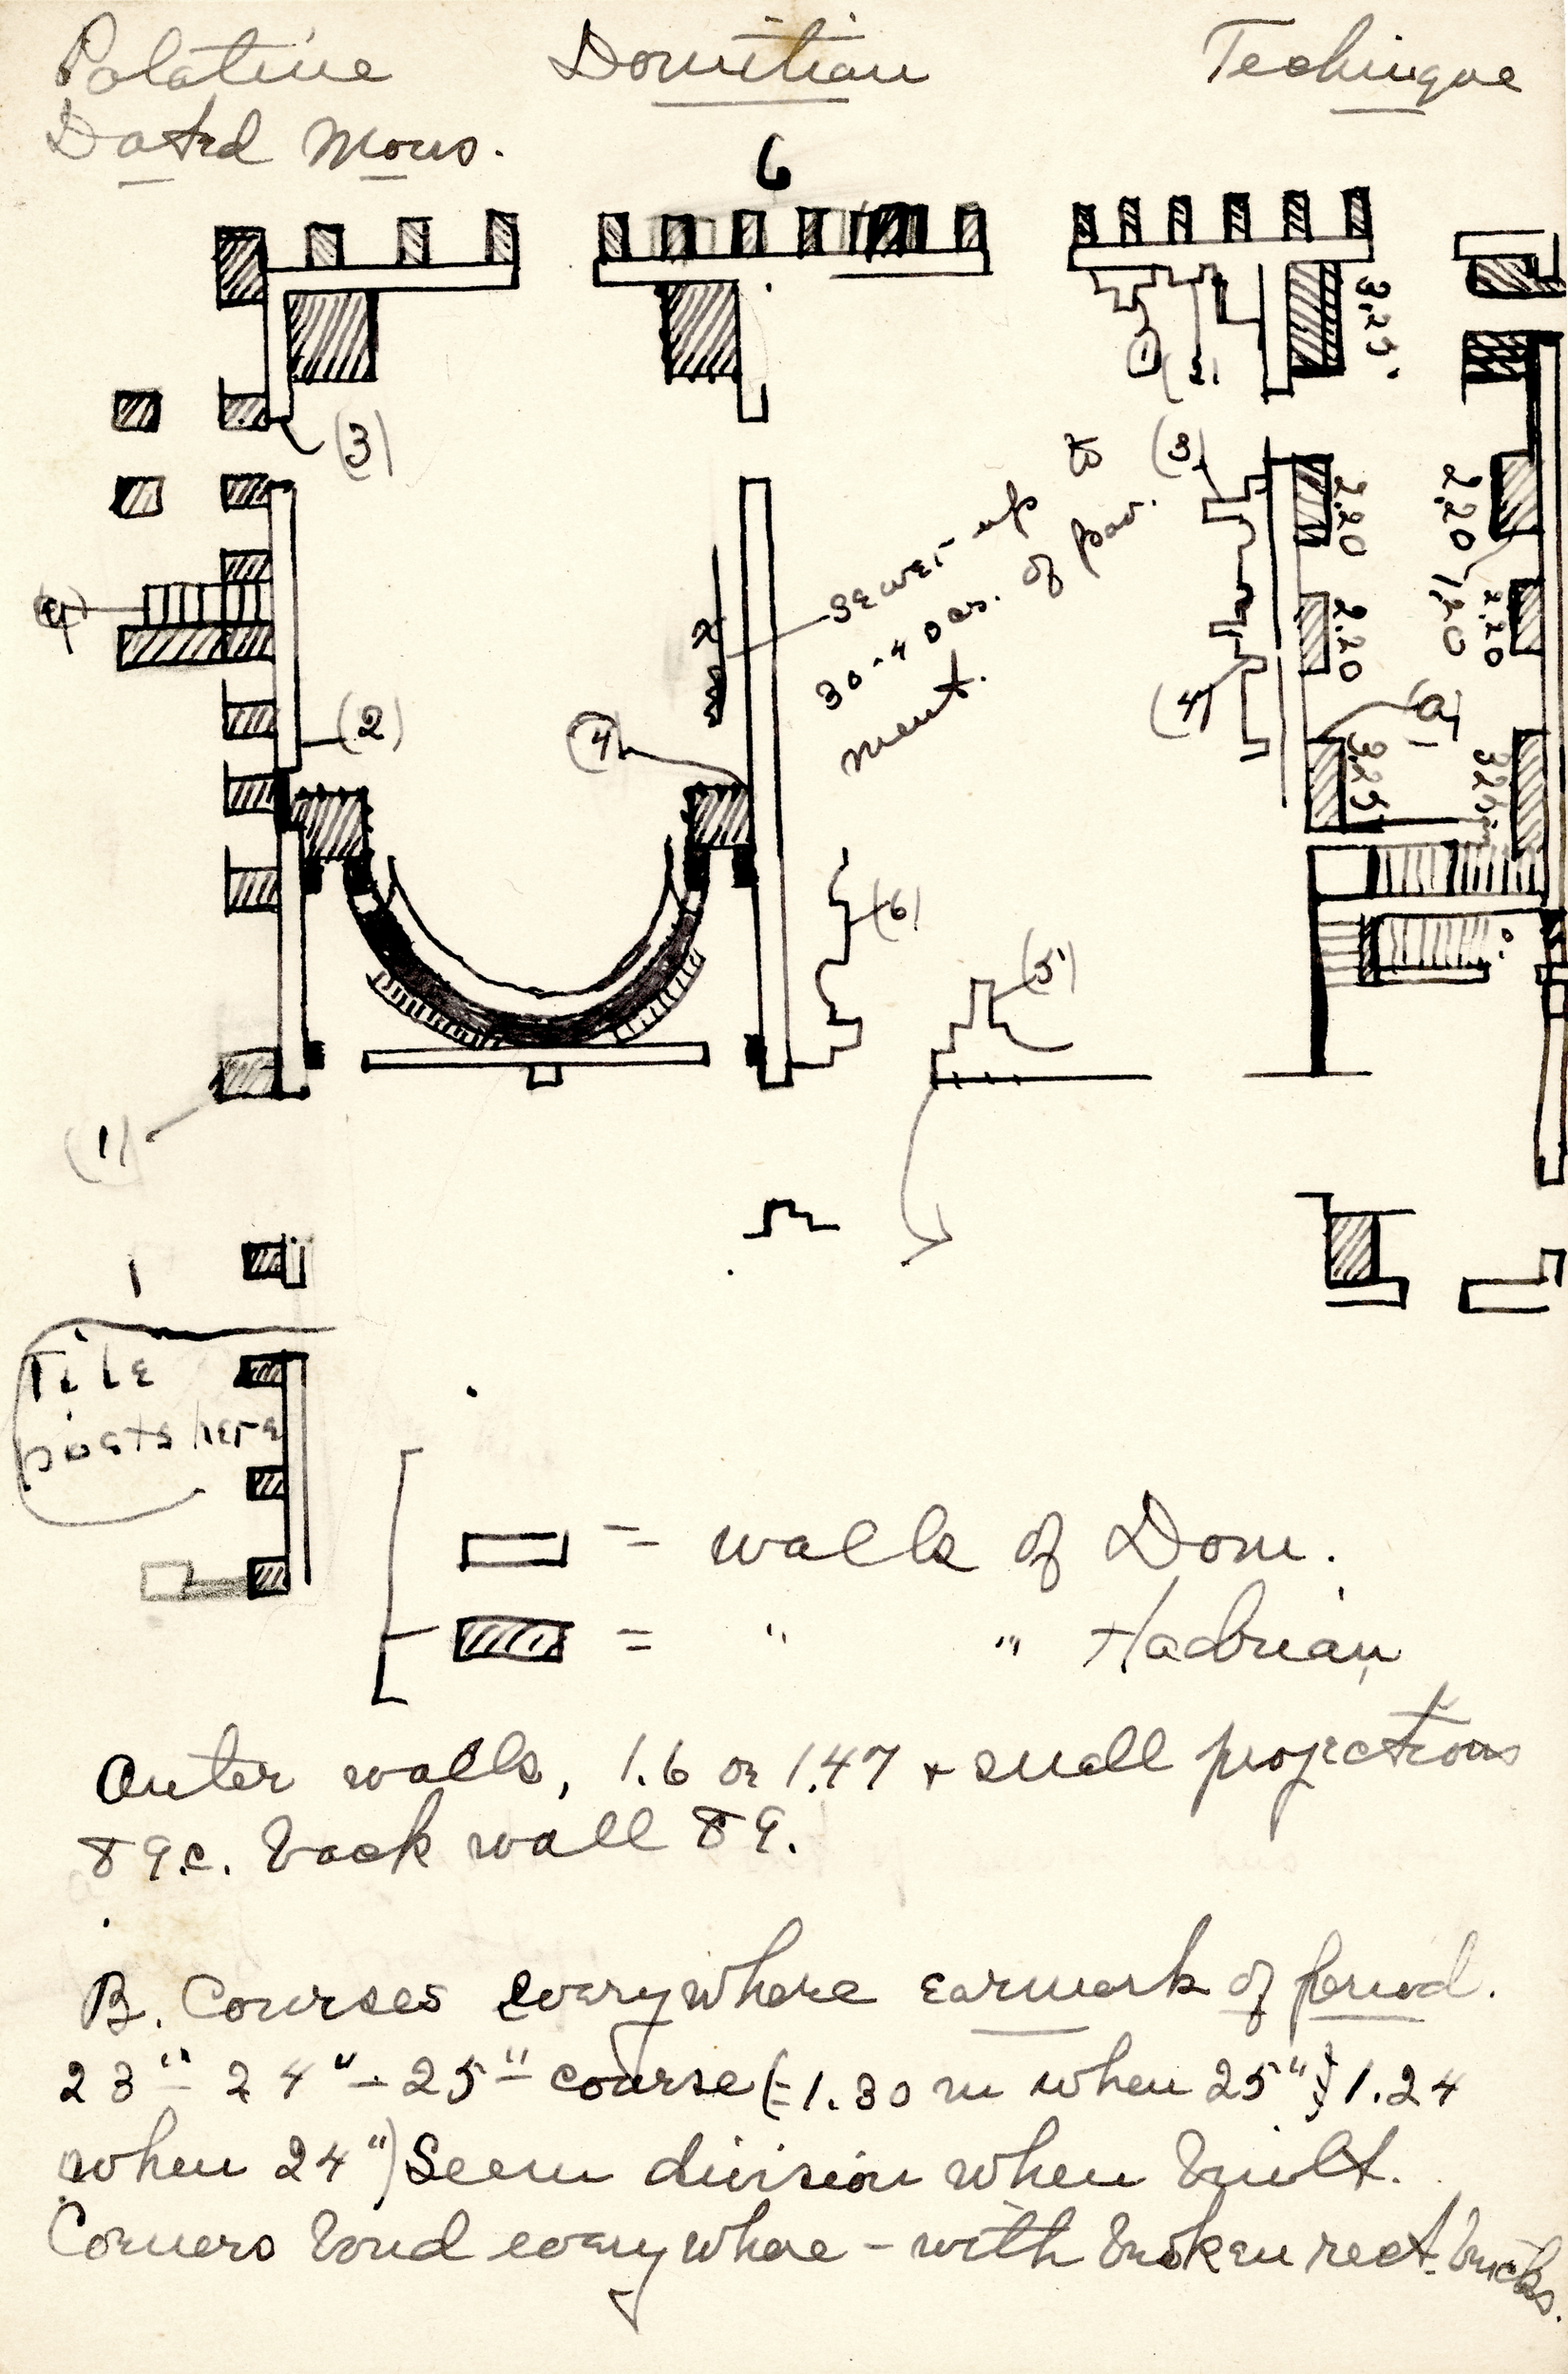 Palatine Domitian Technique
Dated Mons.
6
3,25
(1)
(2)
(3)
(3)
sewer up to
30-40 cs. of pav.
ment.
2.20
2,20
1,20
2.20
2.20
(4)
(2)
(4)
(4)
(a)
3.25
325
(6)
(5)
(1)
1
Tile
posts here
= walls of Dom.
= " " Hadrian
Outer walls, 1.6 or 1.47 + small projections
89.c. back wall 89.
B. Courses everywhere earmark of period.
23" - 24" - 25" - course (=1.30 m when 25"} 1.24
when 24") Seem division when built.
Corners bond everywhere - with broken rect. bricks.